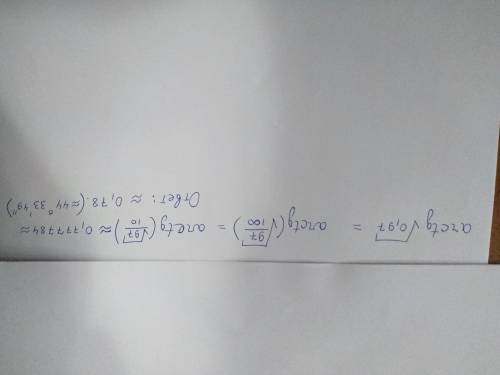 arctg √0,97 = arctg(√97/100) = arctg(√97/10) ≈ 0,777784 ≈
Ответ: ≈ 0,78. (≈ 44° 33' 49")